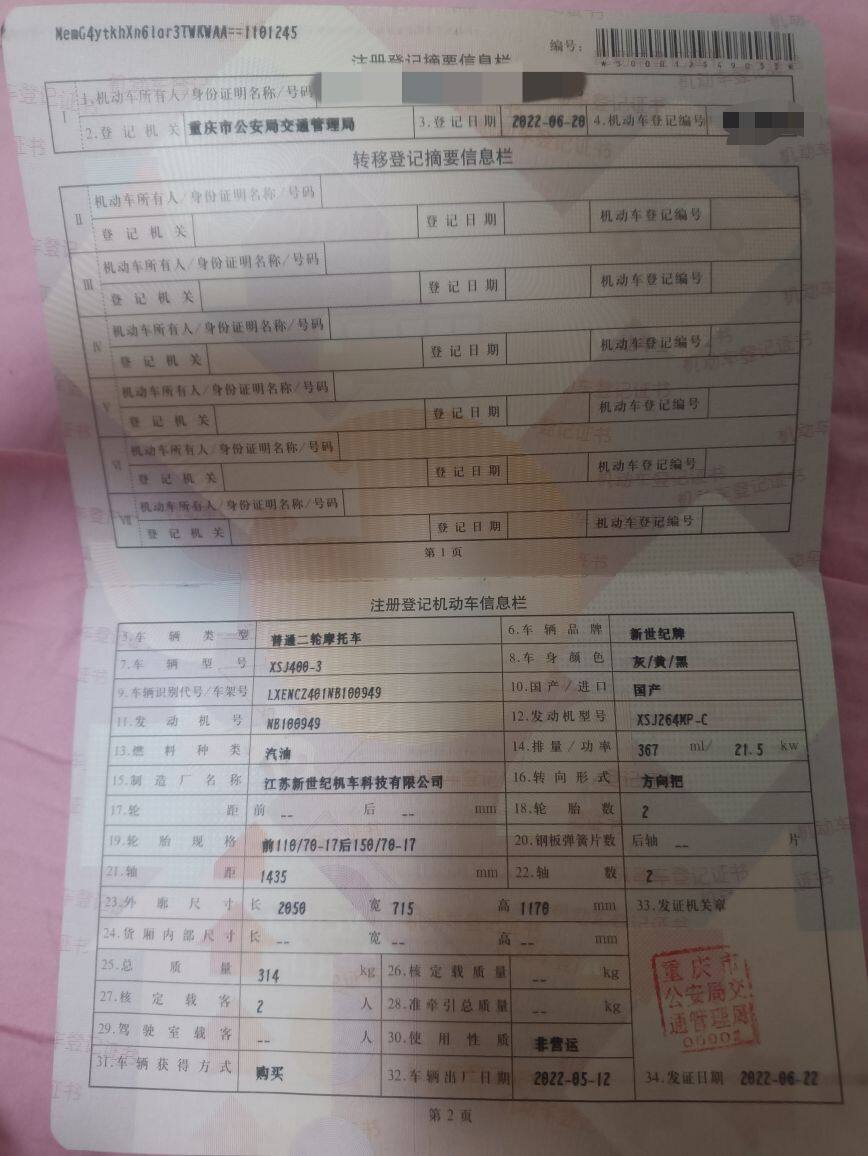 MemG4ytkhXn6lar3TWKWAA==1101245
编号:
注册登记摘要信息栏
I 1.机动车所有人/身份证明名称/号码
2.登记机关 重庆市公安局交通管理局 3.登记日期 2022-06-20 4.机动车登记编号
转移登记摘要信息栏
II 机动车所有人/身份证明名称/号码
登记机关 登记日期 机动车登记编号
III 机动车所有人/身份证明名称/号码
登记机关 登记日期 机动车登记编号
IV 机动车所有人/身份证明名称/号码
登记机关 登记日期 机动车登记编号
V 机动车所有人/身份证明名称/号码
登记机关 登记日期 机动车登记编号
VI 机动车所有人/身份证明名称/号码
登记机关 登记日期 机动车登记编号
VII 机动车所有人/身份证明名称/号码
登记机关 登记日期 机动车登记编号
第1页
注册登记机动车信息栏
5.车辆类型 普通二轮摩托车 6.车辆品牌 新世纪牌
7.车辆型号 XSJ400-3 8.车身颜色 灰/黄/黑
9.车辆识别代号/车架号 LXENCZ401NB100949 10.国产/进口 国产
11.发动机号 NB100949 12.发动机型号 XSJ264MP-C
13.燃料种类 汽油 14.排量/功率 367 ml/ 21.5 kw
15.制造厂名称 江苏新世纪机车科技有限公司 16.转向形式 方向把
17.轮距 前 -- 后 -- mm 18.轮胎数 2
19.轮胎规格 前110/70-17后150/70-17 20.钢板弹簧片数 后轴 -- 片
21.轴距 1435 mm 22.轴数 2
23.外廓尺寸 长 2050 宽 715 高 1170 mm 33.发证机关章
24.货厢内部尺寸 长 -- 宽 -- 高 -- mm
25.总质量 314 kg 26.核定载质量 -- kg
27.核定载客 2 人 28.准牵引总质量 -- kg
29.驾驶室载客 -- 人 30.使用性质 非营运
重庆市
公安局交
通管理局
00002
31.车辆获得方式 购买 32.车辆出厂日期 2022-05-12 34.发证日期 2022-06-22
第2页